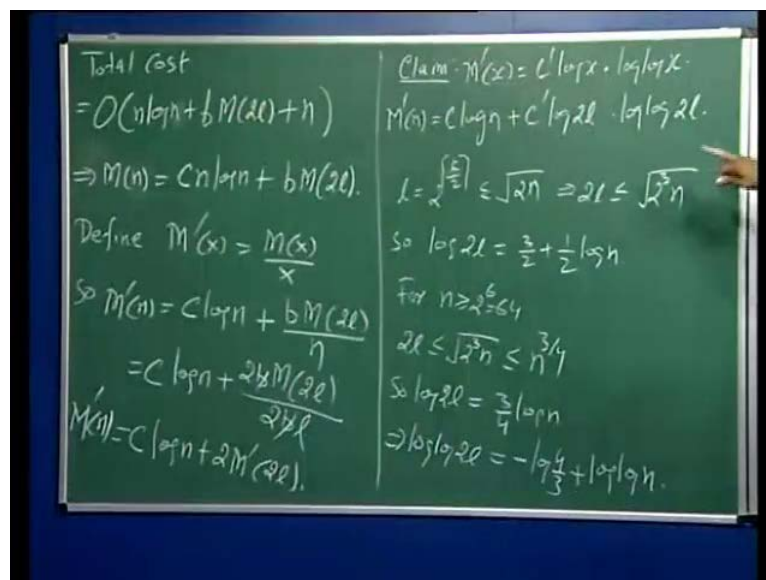 Total Cost
= O(n log n + b M(2l) + n)
⇒ M(n) = C n log n + b M(2l).
Define M'(x) = M(x)/x
So M'(n) = C log n + b M(2l)/n
= C log n + 2b M(2l)/2bl
M'(n) = C log n + 2M'(2l).
Claim · M'(x) = C' log x · log log x.
M'(n) = C log n + C' log 2l · log log 2l.
l = 2^⌈k/2⌉ ≤ √2n ⇒ 2l ≤ √2³n
So log 2l = 3/2 + 1/2 log n
For n ≥ 2⁶ = 64
2l ≤ √2³n ≤ n^3/4
So log 2l = 3/4 log n
⇒ log log 2l = - log 4/3 + log log n.